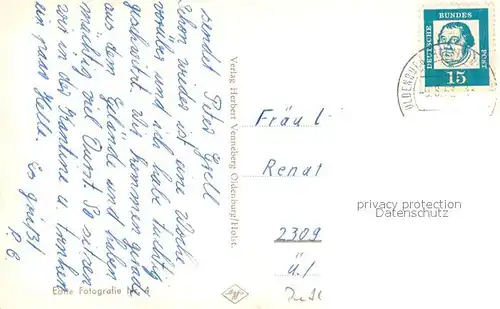 sendet Peter
Schon wieder ist eine Woche
vorüber und ich habe tüchtig
geschwitzt. Wir kommen gerade
aus dem Gelände und haben
mächtig viel Durst. So sitzen
wir in der Kantine u. trinken
ein paar Helle. Es grüßt
P. E.
Echte Fotografie Nr. 4
Verlag Herbert Venneberg Oldenburg/Holst.
DEUTSCHE BUNDES POST
15
OLDENBURG
Fräul
Renat
2309
privacy protection
Datenschutz